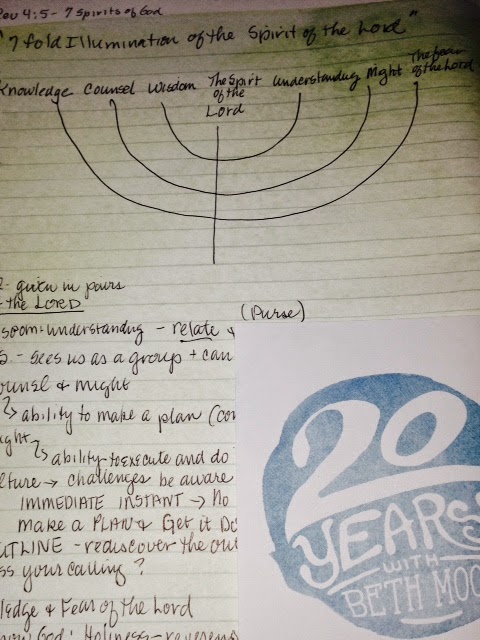 Rev 4:5 - 7 Spirits of God
"7 fold Illumination of the Spirit of the Lord"
Knowledge Counsel Wisdom The Spirit of the Lord Understanding Might The fear of the Lord
given in pairs
the LORD
(Purse)
understanding - relate &
sees us as a group + can
& might
ability to make a plan (co
ability to execute and do
lture → challenges be aware
IMMEDIATE INSTANT → No
make a PLAN & Get it Do
UTLINE - rediscover the out
ss your calling?
ledge & Fear of the Lord
God: Holiness - reverenc
20
YEARS
WITH
BETH MOO